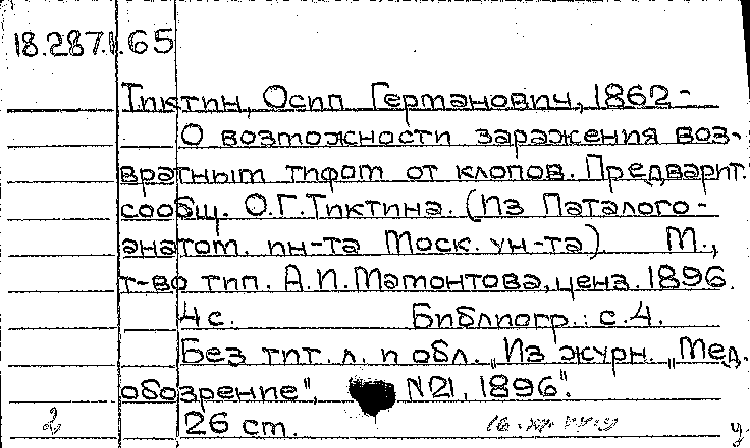 18.287.1.65
Тиктин, Осип Германович, 1862-
О возможности заражения воз-
вратным тифом от клопов. Предварит.
сообщ. О.Г.Тиктина. (Из Паталого-
анатом. ин-та Моск. ун-та). М.,
т-во тип. А.И.Мамонтова, ценз. 1896.
4 с. Библиогр.: с.4.
Без тит. л. и обл. „Из журн. „Мед.
обозрение", N21, 1896".
26 cm.
2